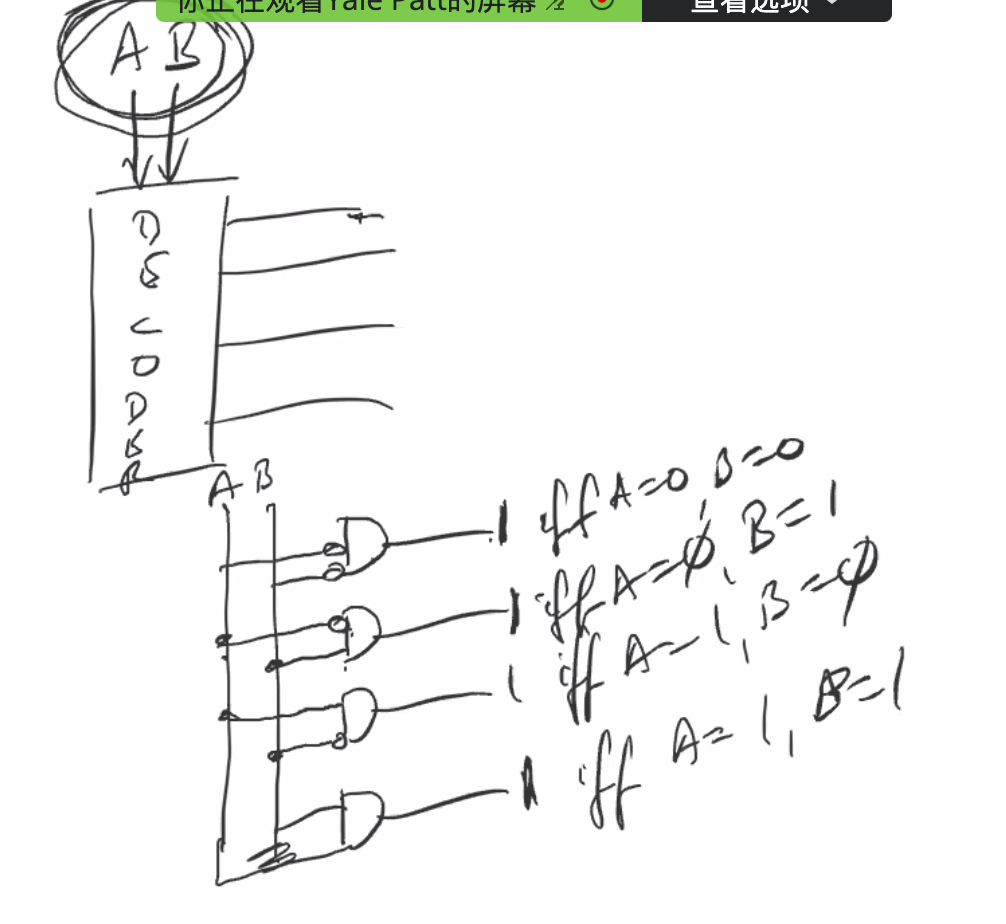 你正在观看Yale Patt的屏幕
查看选项
A B
D
E
C
O
D
E
R
A B
1 iff A=0 B=0
1 iff A=0, B=1
1 iff A=1, B=0
1 iff A=1, B=1